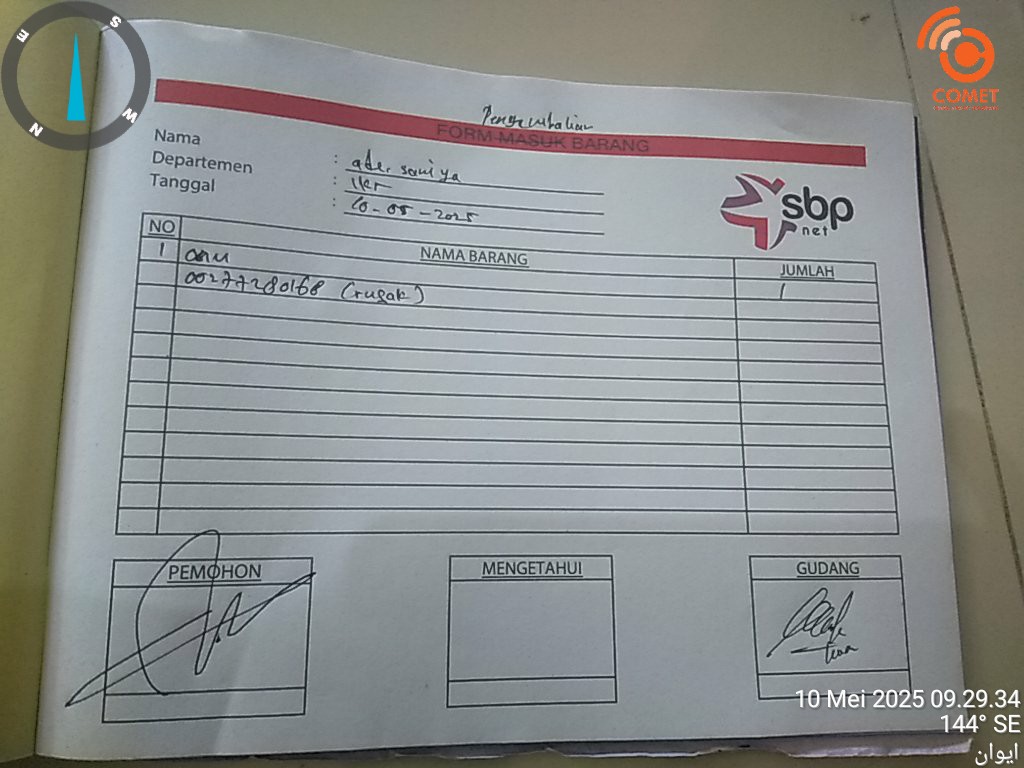 S
E
W
N
COMET
Pengembalian
FORM MASUK BARANG
Nama : ade. soniya
Departemen : IKR
Tanggal : 10-05-2025
sbp
net
NO NAMA BARANG JUMLAH
1 onu 1
00277280168 (rusak)
PEMOHON MENGETAHUI GUDANG
10 Mei 2025 09.29.34
144° SE
ایوان